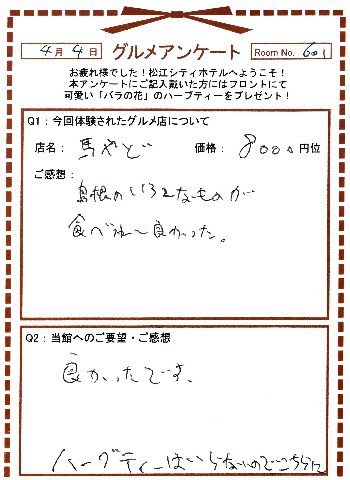 4月4日 グルメアンケート Room No. 601
お疲れ様でした！松江シティホテルへようこそ！
本アンケートにご記入戴いた方にはフロントにて
可愛い「バラの花」のハーブティーをプレゼント！
Q1：今回体験されたグルメ店について
店名： 馬やど 価格： 8000円位
ご感想：
島根のいろんなものが
食べれて良かった。
Q2：当館へのご要望・ご感想
良かったです。
ハーブティーはいらないのでこちらに